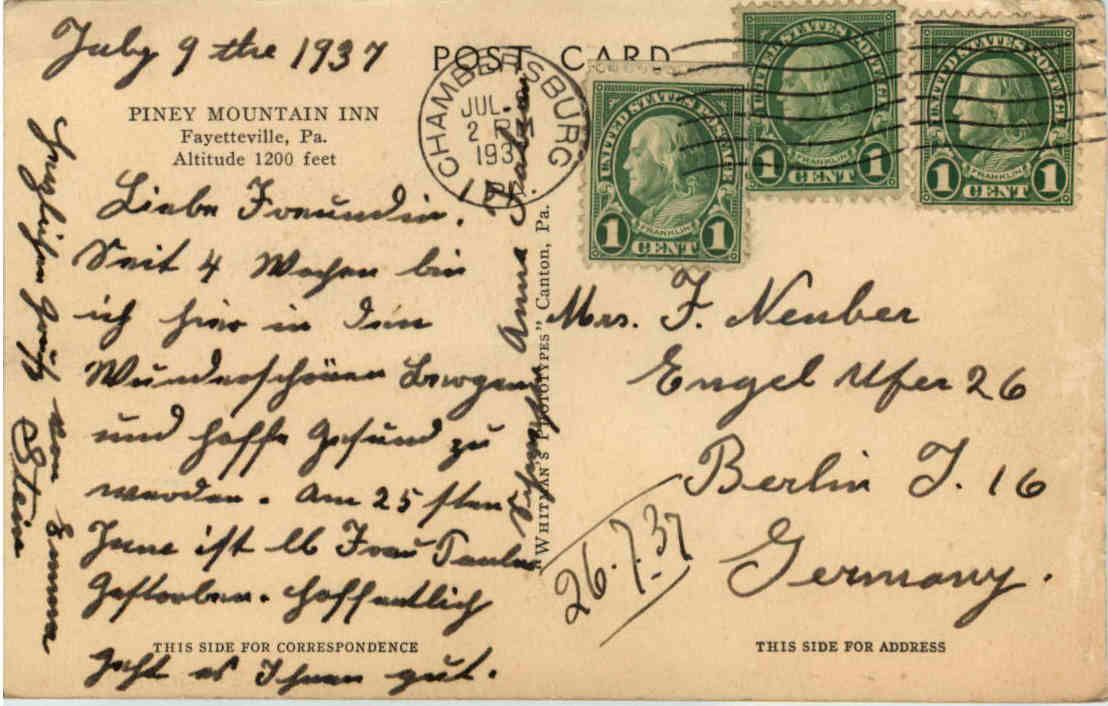 July 9 the 1937
POST CARD
PINEY MOUNTAIN INN
Fayetteville, Pa.
Altitude 1200 feet
Liebe Freundin.
Seit 4 Wochen bin
ich hier in den
Wunderschönen Bergen
und hoffe Gesund zu
werden. Am 25 sten
June ist lb Frau
Gestorben. Hoffentlich
geht es Ihnen gut.
Herzlichen Gruß von Emma
Stein
Anna
"WHITMAN'S PHOTOTYPES" Canton, Pa.
CHAMBERSBURG
JUL.
2 PM
193
PA.
UNITED STATES POSTAGE
FRANKLIN
1 CENT 1
UNITED STATES POSTAGE
FRANKLIN
1 CENT 1
UNITED STATES POSTAGE
FRANKLIN
1 CENT 1
Mrs. F. Neuber
Engel Ufer 26
Berlin I. 16
Germany.
26.7.37
THIS SIDE FOR CORRESPONDENCE
THIS SIDE FOR ADDRESS